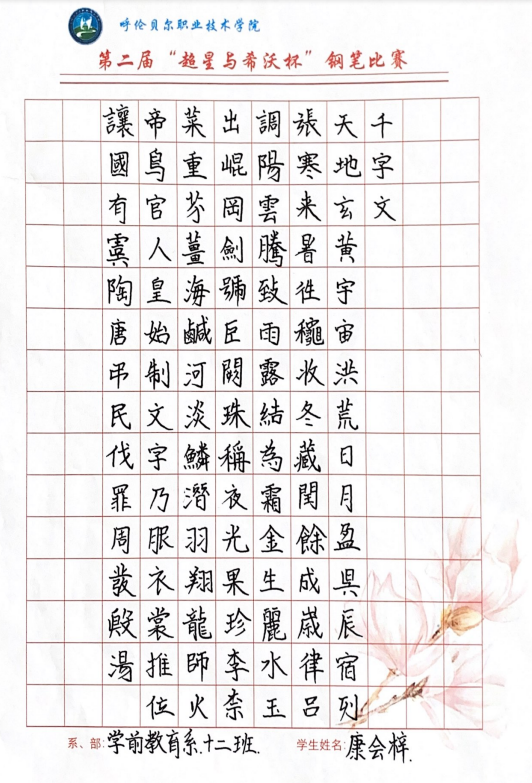 呼伦贝尔职业技术学院
第二届“超星与希沃杯”钢笔比赛
千字文
天地玄黄宇宙洪荒日月盈昃辰宿列
張寒来暑往穐收冬藏閏餘成歲律吕
調陽雲騰致雨露結為霜金生麗水玉
出崐岡劍號巨闕珠稱夜光果珍李柰
菜重芥薑海鹹河淡鱗潛羽翔龍師火
帝鳥官人皇始制文字乃服衣裳推位
讓國有虞陶唐弔民伐罪周發殷湯
系、部:学前教育系.十二班. 学生姓名:康会梓.